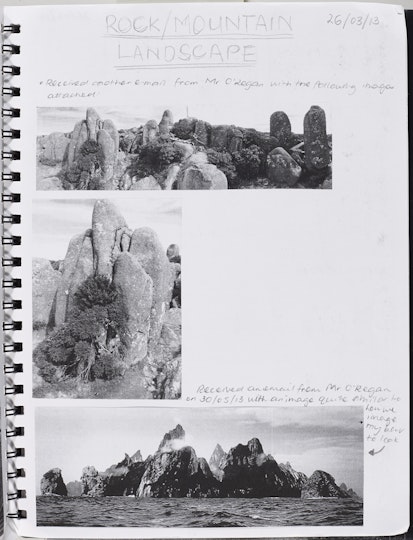 ROCK/MOUNTAIN
26/03/13
LANDSCAPE
• Received another email from Mr O'Regan with the following images
attached:
Received an email from Mr O'Regan
on 30/05/13 with an image quite similar to
how we
image
my
to look